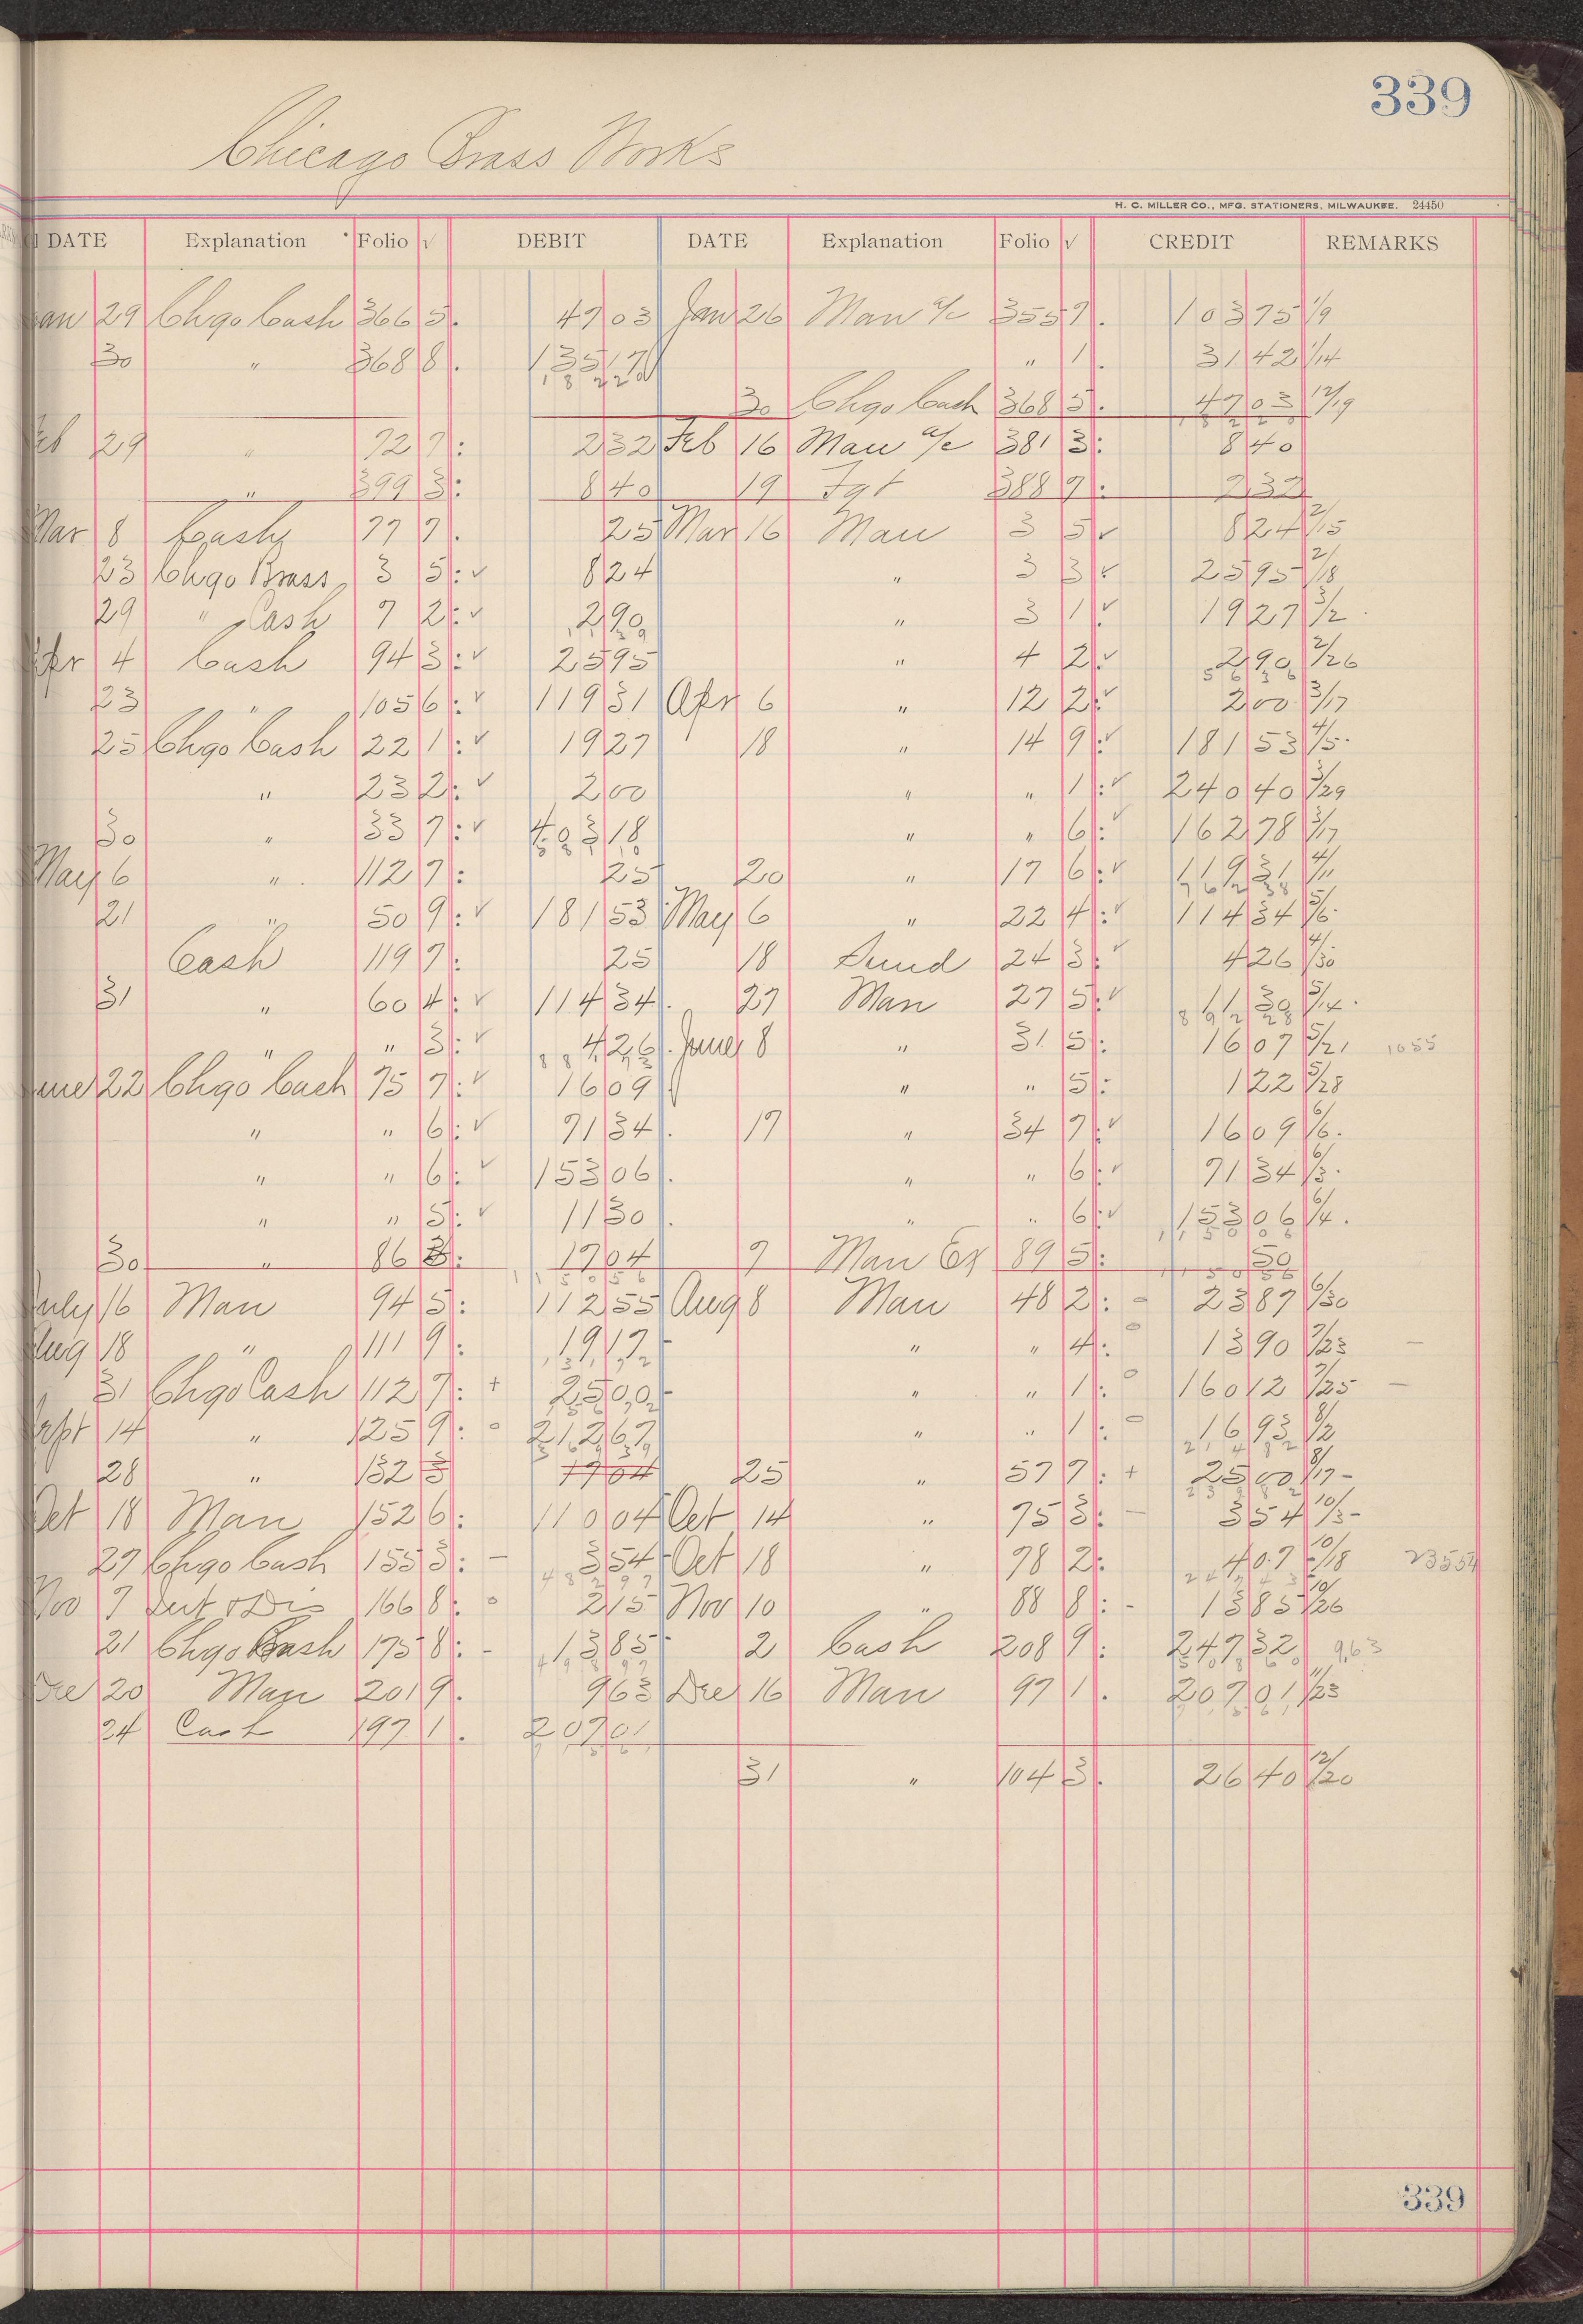 339
Chicago Brass Works
H. C. MILLER CO., MFG. STATIONERS, MILWAUKEE. 24450
DATE Explanation Folio √ DEBIT DATE Explanation Folio √ CREDIT REMARKS
an 29 Chgo Cash 366 5. 47 03 Jan 26 Man a/c 355 7. 103 75 1/9
30 " 368 8. 135 17 " 1. 31 42 1/14
18 2 20
30 Chgo Cash 368 5. 47 03 12/19
eb 29 " 72 7: 2 32 Feb 16 Man a/c 381 3: 8 40
" 399 3: 8 40 19 Fgt 388 7: 2 32
Mar 8 Cash 77 7. 25 Mar 16 Man 3 5 √ 8 24 2/15
23 Chgo Brass 3 5: √ 8 24 " 3 3 √ 25 95 2/18
29 " Cash 7 2: √ 2 90 " 3 1 √ 19 27 3/2
Apr 4 Cash 94 3: √ 25 95 " 4 2 √ 2 90 2/26
23 " 105 6: √ 119 31 Apr 6 " 12 2 √ 2 00 3/17
25 Chgo Cash 22 1: √ 19 27 18 " 14 9: √ 181 53 4/5
" 23 2: √ 2 00 " " 1: √ 240 40 3/29
30 " 33 7: √ 403 18 " " 6: √ 162 78 3/17
May 6 " 112 7: 25 20 " 17 6: √ 119 31 4/11
21 " 50 9: √ 181 53 May 6 " 22 4: √ 114 34 5/6
Cash 119 7: 25 18 Sund 24 3: √ 4 26 4/30
31 " 60 4: √ 114 34. 27 Man 27 5: √ 61 30 5/14
" " 3: √ 4 26. June 8 " 31 5: 16 07 5/21 1055
une 22 Chgo Cash 75 7: √ 16 09 " " 5: 1 22 5/28
" " 6: √ 71 34. 17 " 34 7: √ 16 09 6/6.
" " 6: √ 153 06. " " 6: √ 71 34 6/3.
" " 5: √ 11 30. " " 6: √ 153 06 6/4.
30 " 86 3: 17 04 7 Man Ex 89 5: 50
July 16 Man 94 5: 112 55 Aug 8 Man 48 2: - 23 87 6/30
Aug 18 " 111 9: 19 17 " " 4: 13 90 7/23 —
31 Chgo Cash 112 7: + 25 00 " " 1: 160 12 7/25 —
ept 14 " 125 9: 212 67 " " 1: 16 93 8/2
28 " 132 3 17 04 25 " 57 7: + 25 00 8/17 -
Oct 18 Man 152 6: 110 04 Oct 14 " 75 3: - 3 54 10/3 -
27 Chgo Cash 155 3: - 3 54 Oct 18 " 78 2: 4 07 10/18 23554
Nov 7 Int & Dis 166 8: 2 15 Nov 10 " 88 8: - 13 85 10/26
21 Chgo Cash 175 8: - 13 85 2 Cash 208 9: 247 32 9,63
Dec 20 Man 201 9. 9 63 Dec 16 Man 97 1. 207 01 11/23
24 Cash 197 1. 207 01
31 " 104 3. 26 40 12/20
339